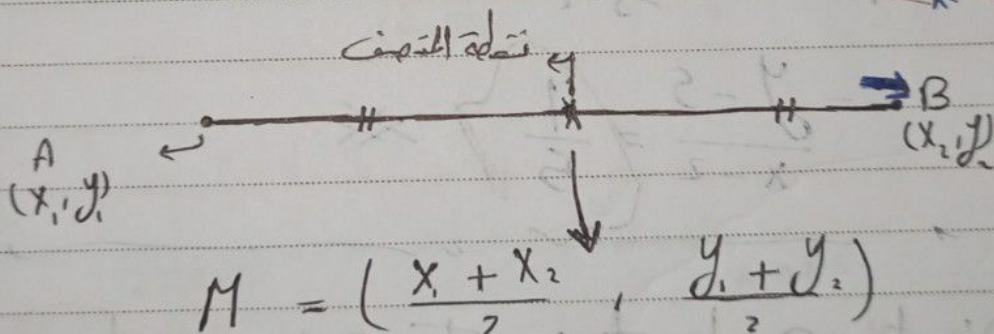 نقطة المنتصف
B
(x₂, y₂)
A
(x₁, y₁)
M = ( (x₁ + x₂)/2 , (y₁ + y₂)/2 )